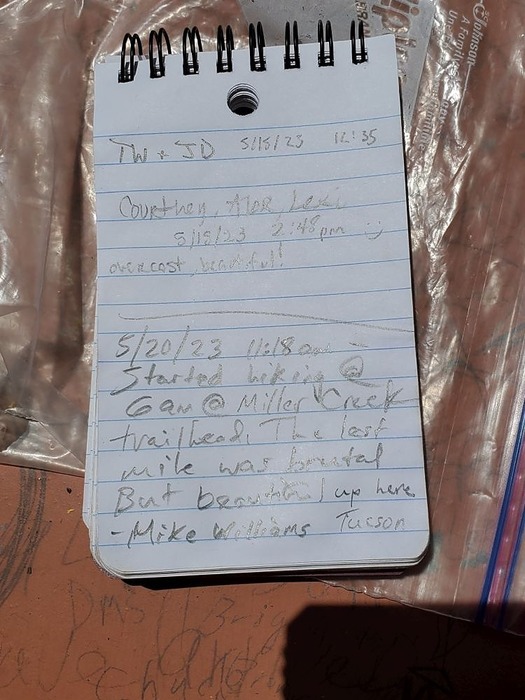 TW + JD 5/15/23 12:35
Courtney, Alex, Lexi
5/15/23 2:48pm :)
overcast, beautiful!
5/20/23 11:18am -
Started hiking @
6am @ Miller Creek
trailhead. The last
mile was brutal
But beautiful up here
-Mike Williams Tucson
Johnson
A Family